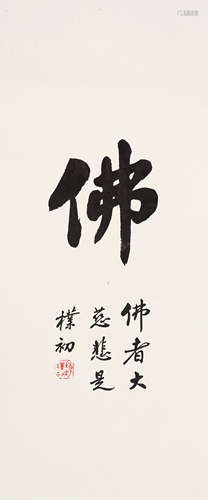 佛
佛者大
慈悲是
樸初